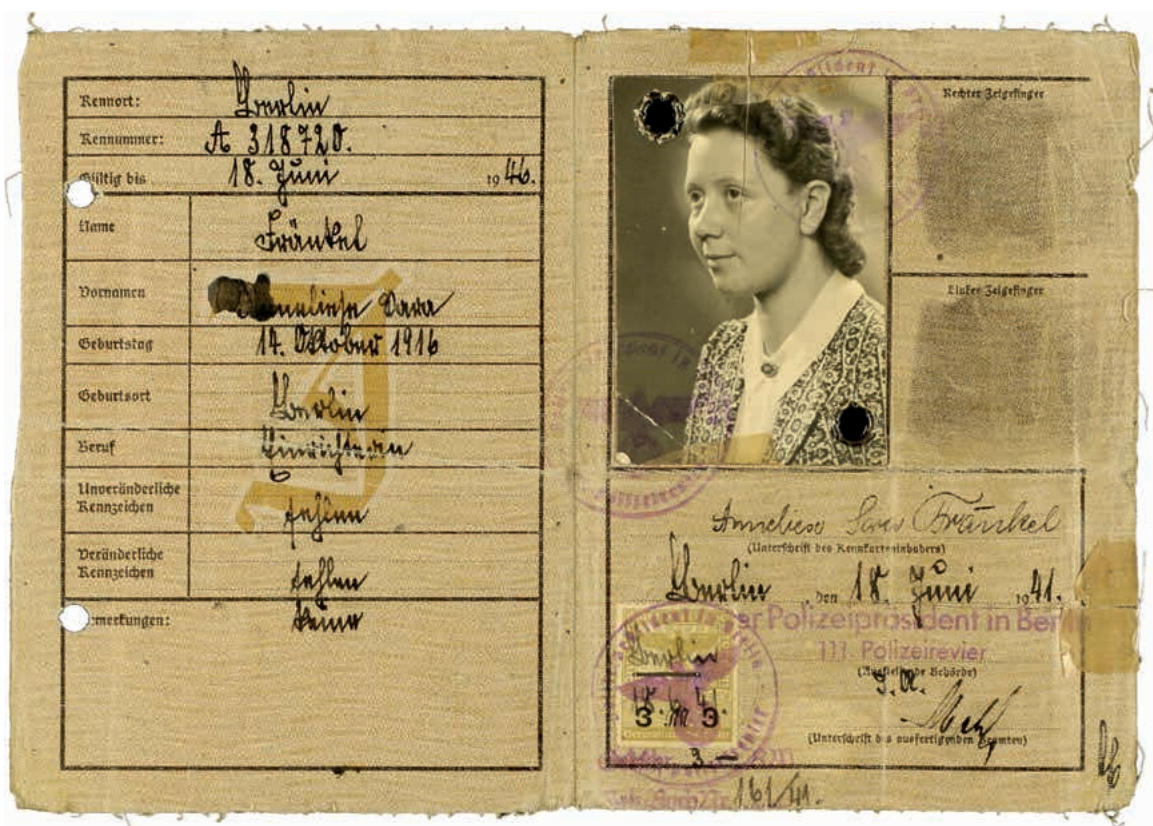 Kennort: Berlin
Kennummer: A 318720.
Gültig bis 18. Juni 1946.
Name Fränkel
Vornamen Anneliese Sara
Geburtstag 14. Oktober 1916
Geburtsort Berlin
Beruf
Unveränderliche
Kennzeichen fehlen
Veränderliche
Kennzeichen fehlen
Bemerkungen: keine
J
Rechter Zeigefinger
Linker Zeigefinger
Anneliese Sara Fränkel
(Unterschrift des Kennkarteninhabers)
Berlin, den 18. Juni 1941.
Der Polizeipräsident in Berlin
111. Polizeirevier
(Ausstellende Behörde)
I.A.
(Unterschrift des ausfertigenden Beamten)
Berlin
18. 6. 41.
3 3
3.—
161/41.